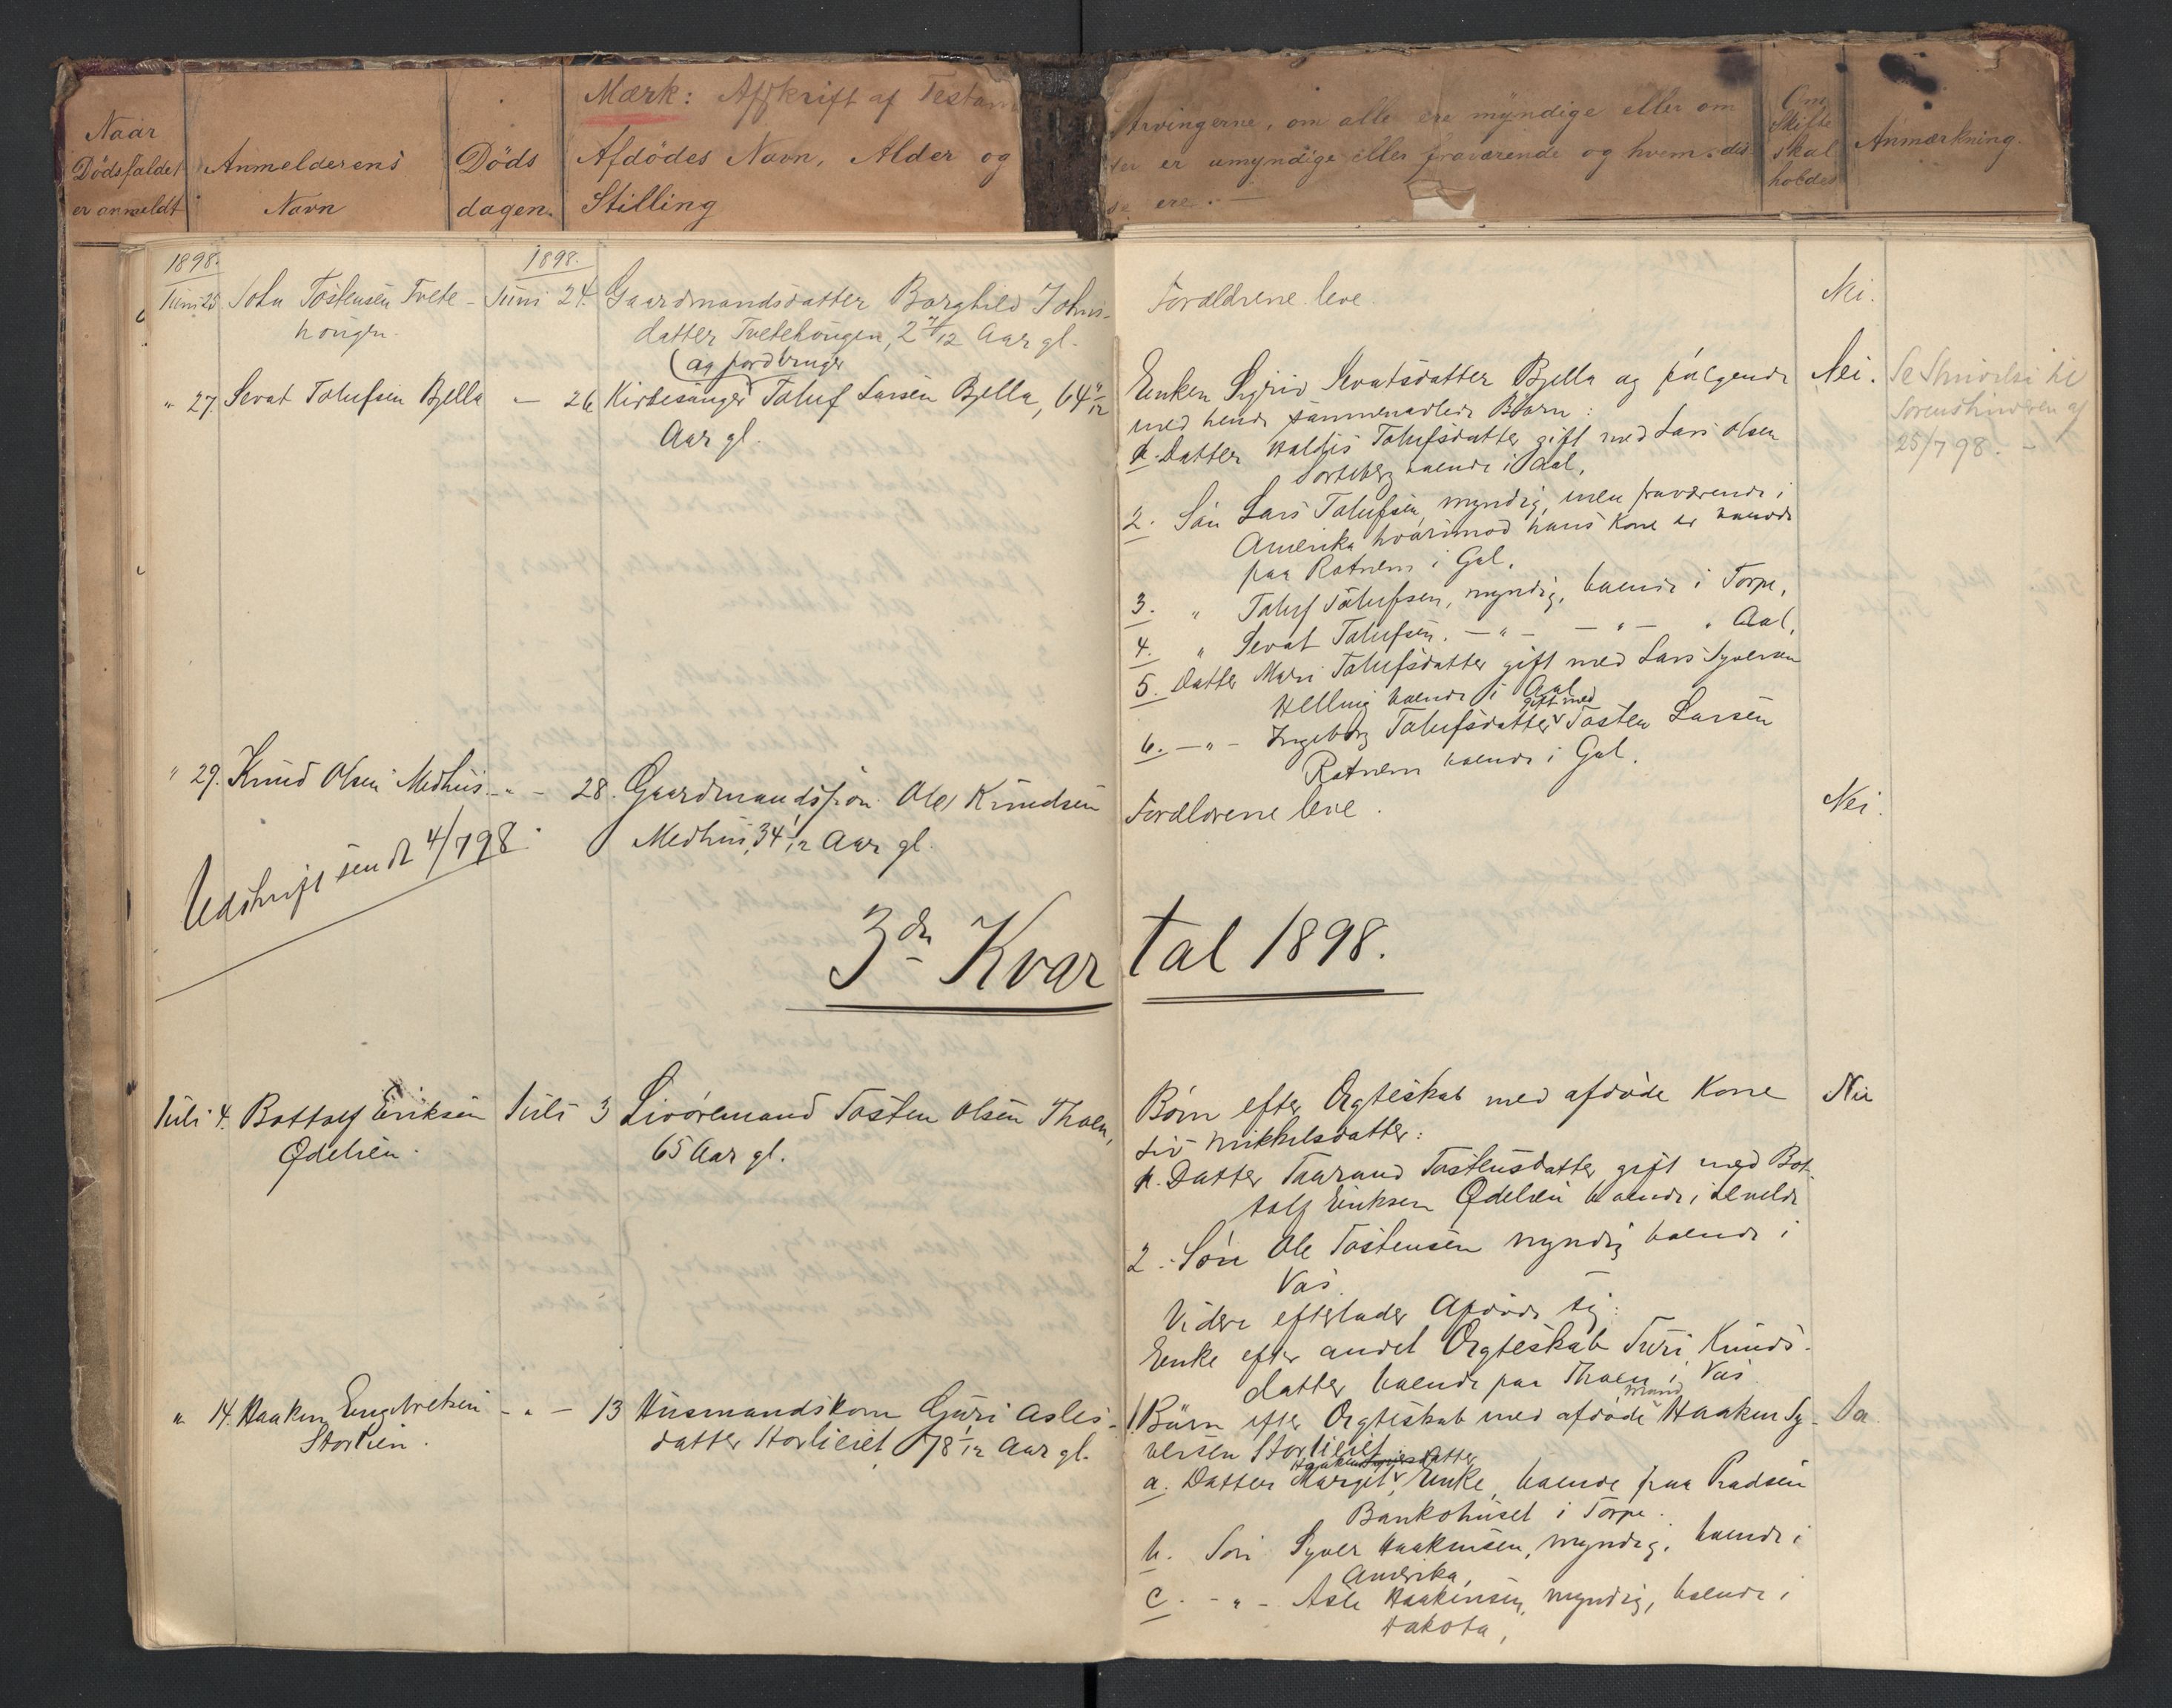 Mærk: Afskrift af Testam
Naar
Dødsfaldet
er anmeldt
Anmelderens
Navn
Døds
dagen.
Afdödes Navn, Alder og
Stilling
Arvingerne, om alle ere myndige eller om
er umyndige eller fraværende og hvem disse
ere. —
Om
Skifte
skal
holdes
Anmærkning.
1898.
1898.
Juni 25 John Tostensen Tvete-
hougen.
Juni 24. Gaardmandsdatter Borghild Johns-
datter Tvetehougen, 2 /12 Aar gl.
Forældrene leve.
Nei.
og jordbruger
" 27. Sevat Tolufsen Bjella — 26 Kirkesanger Toluf Larsen Bjella, 64 /12
Aar gl.
Enken Sigrid Sevatsdatter Bjella og følgende
med hende sammenavlede Børn:
1. Datter Haldis Tolufsdatter gift med Lars Olsen
Sorteberg boende i Aal.
2. Søn Lars Tolufsen, myndig, men fraværende i
Amerika hvorimod hans Kone er boende
paa Rotnem i Gol.
3. " Toluf Tolufsen, myndig, boende i Torpe,
4. " Sevat Tolufsen. — " — — " — " Aal,
5. Datter Mari Tolufsdatter gift med Lars Syversen
Helling boende i Aal
gift med
6. — " — Ingeborg Tolufsdatter Tosten Larsen
Rotnem boende i Gol.
Nei.
Se Skrivelse til
Sorenskriveren af
25/7 98. —
" 29. Knud Olsen Medhus — " — 28. Gaardmandssøn Ole Knudsen
Medhus, 34 1/12 Aar gl.
Forældrene leve.
Nei.
Udskrift sendt 4/7 98.
3de Kvartal 1898.
Juli 4. Bottolf Eriksen
Ødelien.
Juli 3 Livøremand Tosten Olsen Thoen,
65 Aar gl.
Børn efter Ægteskab med afdøde Kone
Liv Mikkelsdatter:
1. Datter Taarand Tostensdatter gift med Bot-
tolf Eriksen Ødelien boende i Leveld
2. Søn Ole Tostensen myndig boende i
Vas.
Videre efterlader Afdøde sig:
Enke efter andet Ægteskab Turi Knuds-
datter boende paa Thoen i Vas.
Nei
" 14. Haaken Engebretsen
Storlien.
— " — 13 Husmandskone Guri Asles-
datter Storlieiet, 78 1/12 Aar gl.
mand
1. Børn efter Ægteskab med afdøde Haaken Sy-
versen Storlieiet.
a. Datter Margit, Enke, boende paa
Bankohuset i Torpe.
b. Søn Syver Haakensen, myndig, boende i
Amerika,
c. — " — Asle Haakensen, myndig, boende i
Dakota,
Ja.